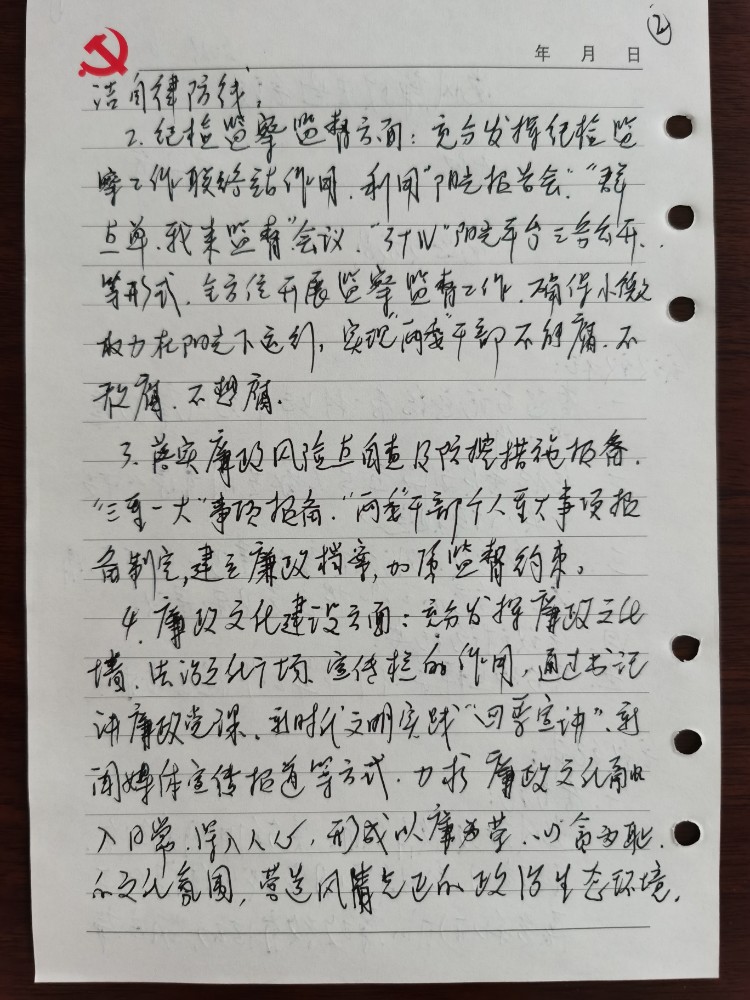 ②
年 月 日
洁自律防线；
2.纪检监察监督方面：充分发挥纪检监
察工作联络站作用，利用"阳光报告会"、"群
点单、我来监督"会议、"3+N"阳光平台三务公开、
等形式，全方位开展监察监督工作，确保小微
权力在阳光下运行，实现"两委"干部不能腐、不
敢腐、不想腐。
3.落实廉政风险点自查及防控措施报备、
"三重一大"事项报备、"两委"干部个人重大事项报
备制定，建立廉政档案，加质监督约束。
4.廉政文化建设方面：充分发挥廉政文化
墙、法治文化广场、宣传栏的作用，通过书记
讲廉政党课、新时代文明实践"四季宣讲"、新
闻媒体宣传报道等方式，力求廉政文化融
入日常、深入人心，形成以廉为荣、以贪为耻、
的文化氛围，营造风清气正的政治生态环境。